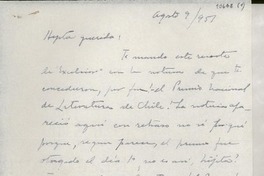 Agosto 9/951
Hijita querida:
Te mando este recorte
de "Excelsior" con la noticia de que te
concedieron, por fin! el Premio Nacional
de Literatura de Chile. La noticia apa-
reció aquí con retraso no sé por qué
porque, según parece, el premio fue
otorgado el día 1º no es así, hijita?